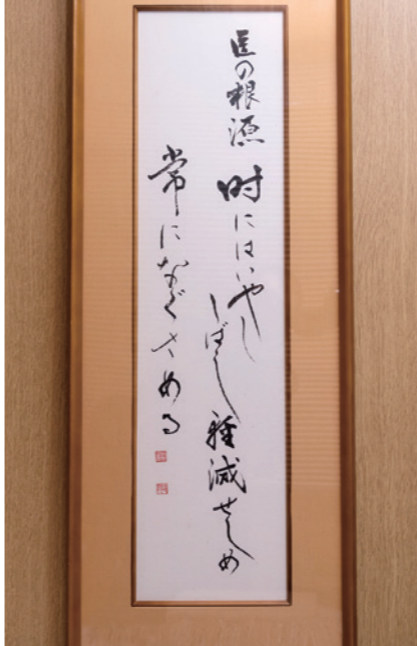 医の根源
時にはいやし
しば〱軽減せしめ
常になぐさめる